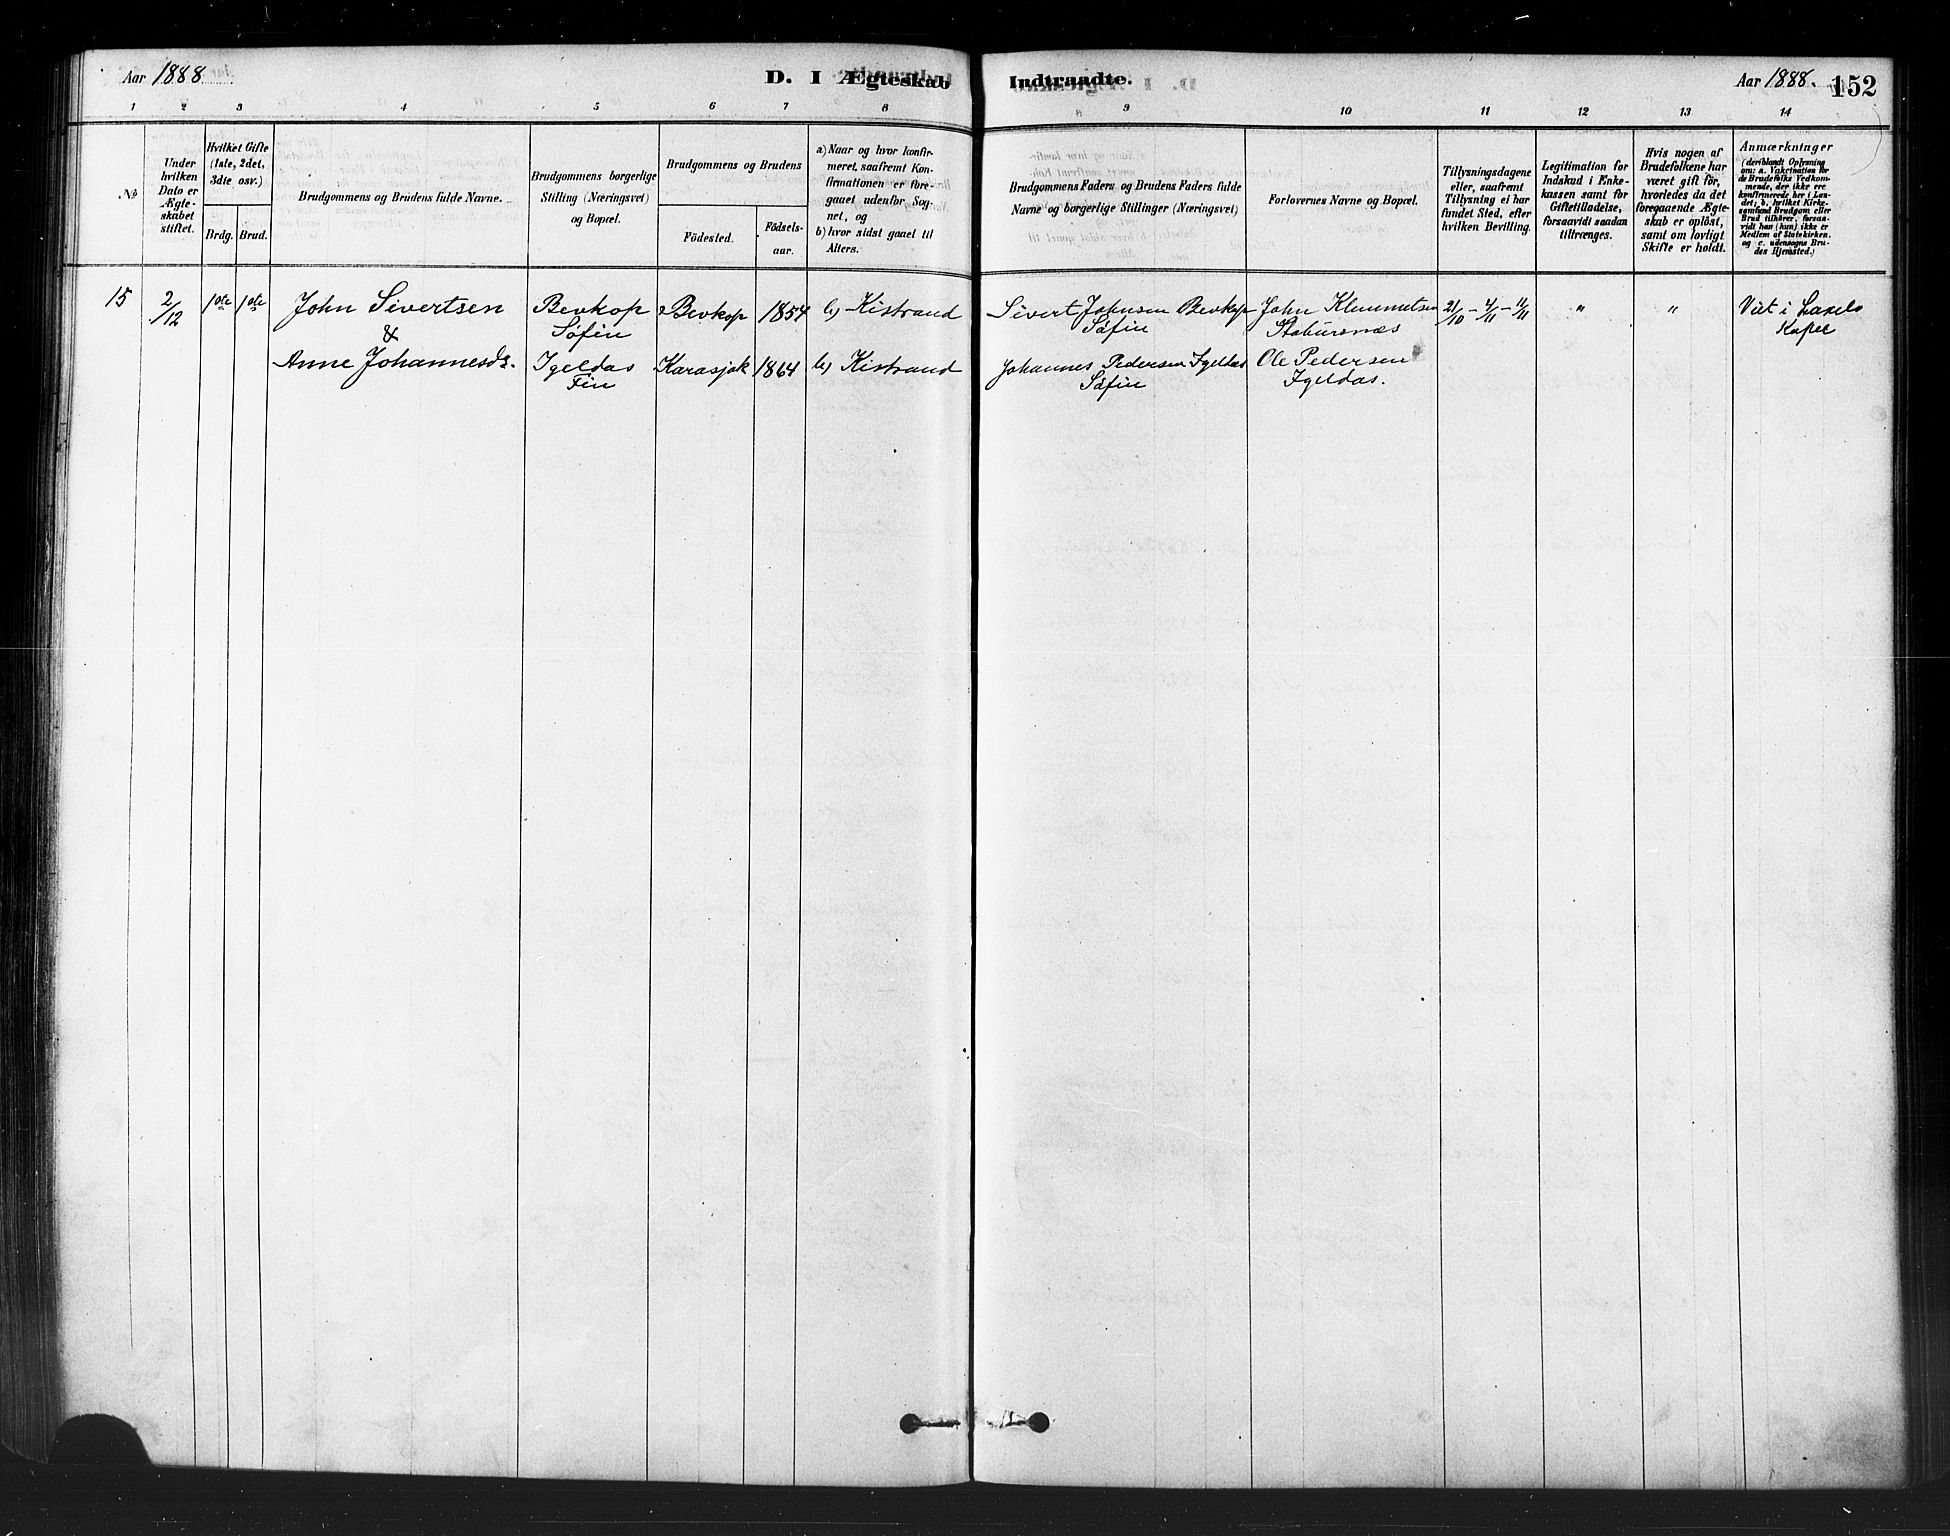 Aar 1888
D. I Ægteskab
Indtraadte.
Aar 1888.
152
1 2 3 4 5 6 7 8 9 10 11 12 13 14
No
Under
hvilken
Dato er
Ægte-
skabet
stiftet.
Hvilket Gifte
(1ste, 2det,
3die osv.)
Brdg. Brud.
Brudgommens og Brudens fulde Navne.
Brudgommens borgerlige
Stilling (Næringsvei)
og Bopæl.
Brudgommens og Brudens
Födested.
Födsels-
aar.
a) Naar og hvor konfir-
meret, saafremt Kon-
firmationen er fore-
gaaet udenfor Sog-
net, og
b) hvor sidst gaaet til
Alters.
Brudgommens Faders og Brudens Faders fulde
Navne og borgerlige Stillinger (Næringsvei)
Forlovernes Navne og Bopæl.
Tillysningsdagene
eller, saafremt
Tillysning ei har
fundet Sted, efter
hvilken Bevilling.
Legitimation for
Indskud i Enke-
kassen samt for
Giftetilladelse,
forsaavidt saadan
tiltrænges.
Hvis nogen af
Brudefolkene har
været gift för,
hvorledes da det
foregaaende Ægte-
skab er oplöst,
samt om lovligt
Skifte er holdt.
Anmærkninger
(deriblandt Oplysning
om: a. Vakcination for
de Brudefolks Vedkom-
mende, der ikke ere
konfirmerede her i Lan-
det; b. hvilket Kirke-
samfund Brudgom eller
Brud tilhörer, forsaa-
vidt han (hun) ikke er
Medlem af Statskirken.
og c. udensogns Bru-
des Hjemsted.)
15 2/12 1ste 1ste John Sivertsen Bevkop Bevkop 1854 b) Kistrand Sivert Johnsen Bevkop John Klemmetsen 21/10 - 4/11 - 11/11 " " Viet i Laxelv
& Söfin Söfin Stabursnæs Kapel
Anne Johannesdr. Igeldas Karasjok 1864 b) Kistrand Johannes Pedersen Igeldas Ole Pedersen
Fin Söfin Igeldas.